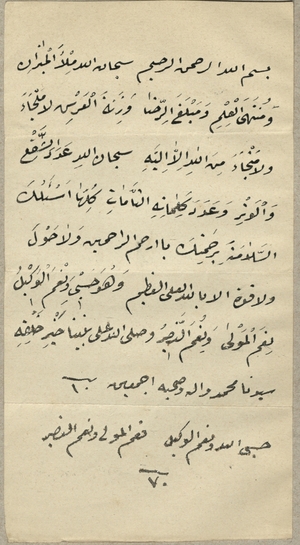 بسم الله الرحمن الرحيم سبحان الله مِلْأَ الْمِيْزَانِ
وَمُنْتَهَى الْعِلْمِ وَمَبْلَغَ الرِّضَا وَزِنَةَ الْعَرْشِ لَا مَلْجَأَ
ولا مَنْجَأَ مِنَ اللهِ اِلَّا اِلَيْهِ سبحان اللهِ عَدَدَ الشَّفْعِ
وَالْوَتْرِ وَعَدَدَ كَلِمَاتِهِ التَّامَّاتِ كُلِّهَا اَسْئَلُكَ
السَّلَامَةَ بِرَحْمَتِكَ يا ارحم الراحمين وَلَا حَوْلَ
ولا قوة الا بالله العلى العظيم وَهُوَ حَسْبِى وَنِعْمَ الْوَكِيْلُ
نِعْمَ الْمَوْلَى وَنِعْمَ النَّصِيْرُ وصلى الله على نَبِيِّنَا خَيْرِ خَلْقِهِ
سيدنا محمد واله وصحبه اجمعين ١٠
حسبى الله ونعم الوكيل نعم المولى ونعم النصير
٧٠